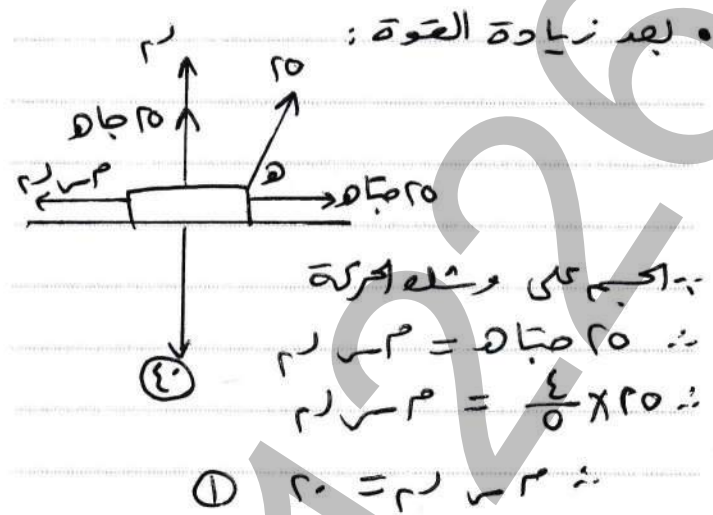 • بعد زيادة القوة :
ر
٢٥
٢٥ جاه
ه
م س ر
٢٥ جتاه
٤٠
∵ الجسم على وشك الحركة
∴ ٢٥ جتاه = م س ر
∴ ٢٥ × ٤/٥ = م س ر
∴ م س ر = ٢٠ ①